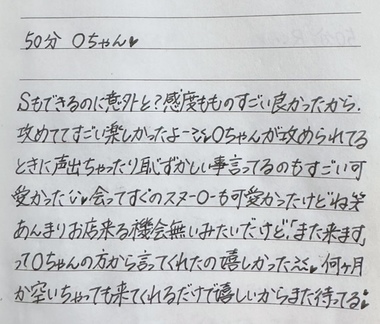 50分 Oちゃん♥
Sもできるのに意外と?感度もものすごい良かったから、
攻めててすごい楽しかったよーˊˎ Oちゃんが攻められてる
ときに声出ちゃったり恥ずかしい事言ってるのもすごい可
愛かった 会ってすぐのスターOーも可愛かったけどね笑
あんまりお店来る機会無いみたいだけど、「また来ます」
ってOちゃんの方から言ってくれたの嬉しかった♥ 何ヶ月
か空いちゃっても来てくれるだけで嬉しいからまた待ってる